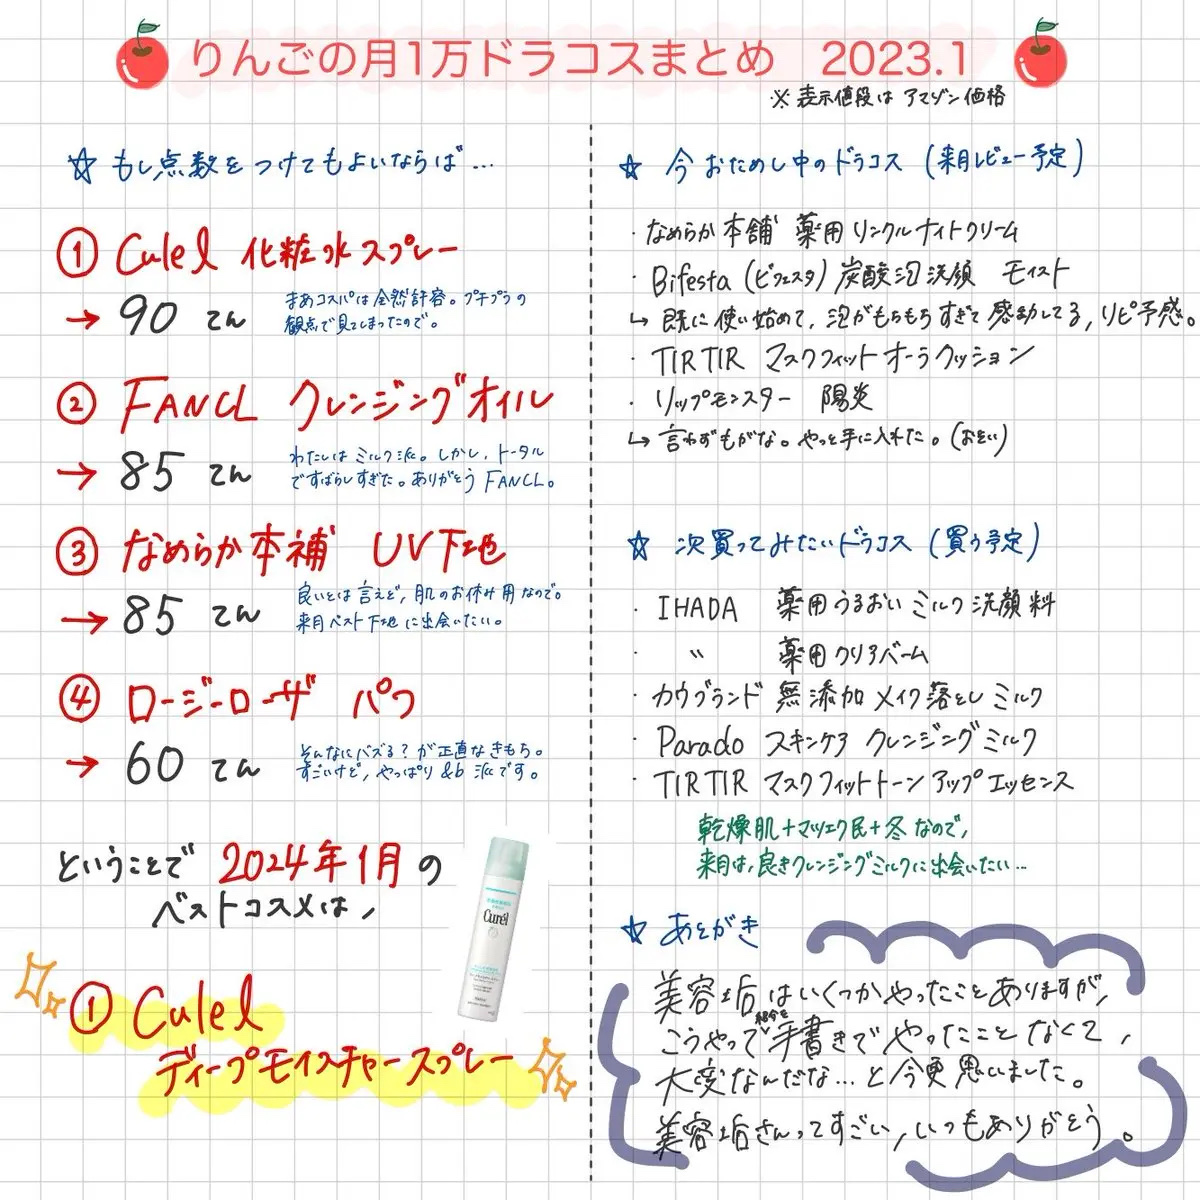 りんごの月1万ドラコスまとめ 2023.1
※ 表示値段は アマゾン価格
☆ もし点数をつけてもよいならば...
① Culel 化粧水スプレー
→ 90 てん
まあコスパは全然許容。プチプラの
観点で見てしまったので。
② FANCL クレンジングオイル
→ 85 てん
わたしは ミルク派。しかし、トータル
ですばらしすぎた。ありがとう FANCL。
③ なめらか本補 UV下地
→ 85 てん
良いとは言えど、肌のお休み用なので。
来月ベスト下地に出会いたい。
④ ロージーローザ パフ
→ 60 てん
そんなにバズる?が正直なきもち。
すごいけど、やっぱり &b 派です。
ということで 2024年1月の
ベストコスメは、
Curél
① Culel
ディープモイスチャースプレー
☆ 今おためし中のドラコス (来月レビュー予定)
・なめらか本舗 薬用リンクルナイトクリーム
・Bifesta (ビフェスタ) 炭酸泡洗顔 モイスト
↳ 既に使い始めて、泡がもちもちすぎて感動してる、リピ予感。
・TIRTIR マスクフィットオーラクッション
・リップモンスター 陽炎
↳ 言わずもがな。やっと手に入れた。(おそい)
☆ 次買ってみたいドラコス (買う予定)
・IHADA 薬用うるおいミルク洗顔料
・〃 薬用クリアバーム
・カウブランド 無添加メイク落としミルク
・Parado スキンケア クレンジングミルク
・TIRTIR マスクフィットトーンアップエッセンス
乾燥肌+マツエク民+冬なので、
来月は、良きクレンジングミルクに出会いたい...
☆ あとがき
美容垢はいくつかやったことありますが、
こうやって紹介を手書きでやったことなくて、
大変なんだな...と今更思いました。
美容垢さんってすごい、いつもありがとう。